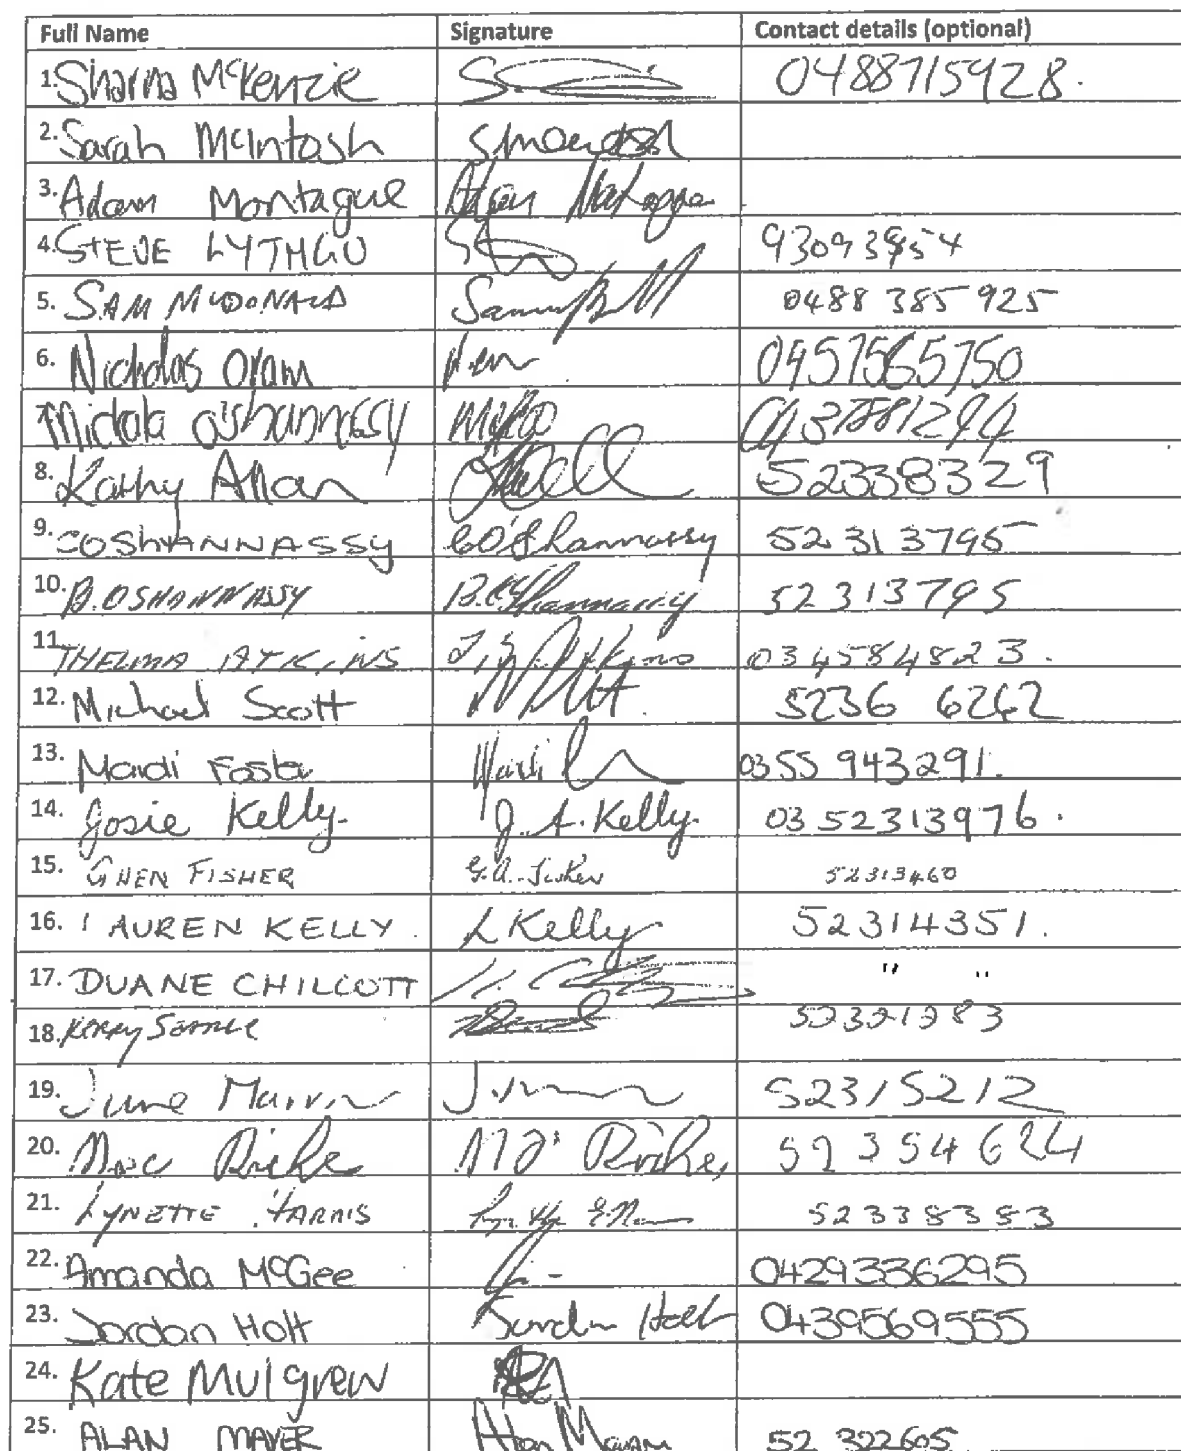 Full Name Signature Contact details (optional)
1. Sharna McKenzie 0488715928.
2. Sarah McIntosh
3. Adam Montague
4. STEVE LYTHGO 9309
5. SAM MCDONALD 0488 385 925
6. Nicholas Oram 0457565750
7. O'Shannassy
8. Kathy Allan 52338329
9. COSHANNASSY CO'Shannassy 52313795
10. B.OSHANNASSY B.O'Shannassy 52313795
11. THELMA ATKINS Atkins 034584823.
12. Michael Scott 5236 6262
13. Mardi Foster Mardi 0355 943291.
14. Josie Kelly. J. A. Kelly. 03 52313976.
15. GWEN FISHER G.A. Fisher 52313460
16. LAUREN KELLY. L Kelly 52314351.
17. DUANE CHILCOTT " "
18. KERRY 52321283
19. June 52315212
20. Riche Riche, 52354624
21. LYNETTE HARRIS 52338383
22. Amanda McGee 0429336295
23. Jordan Holt Jordan Holt 0439569555
24. Kate Mulgrew
25. ALAN MAYER Alan 52 322605